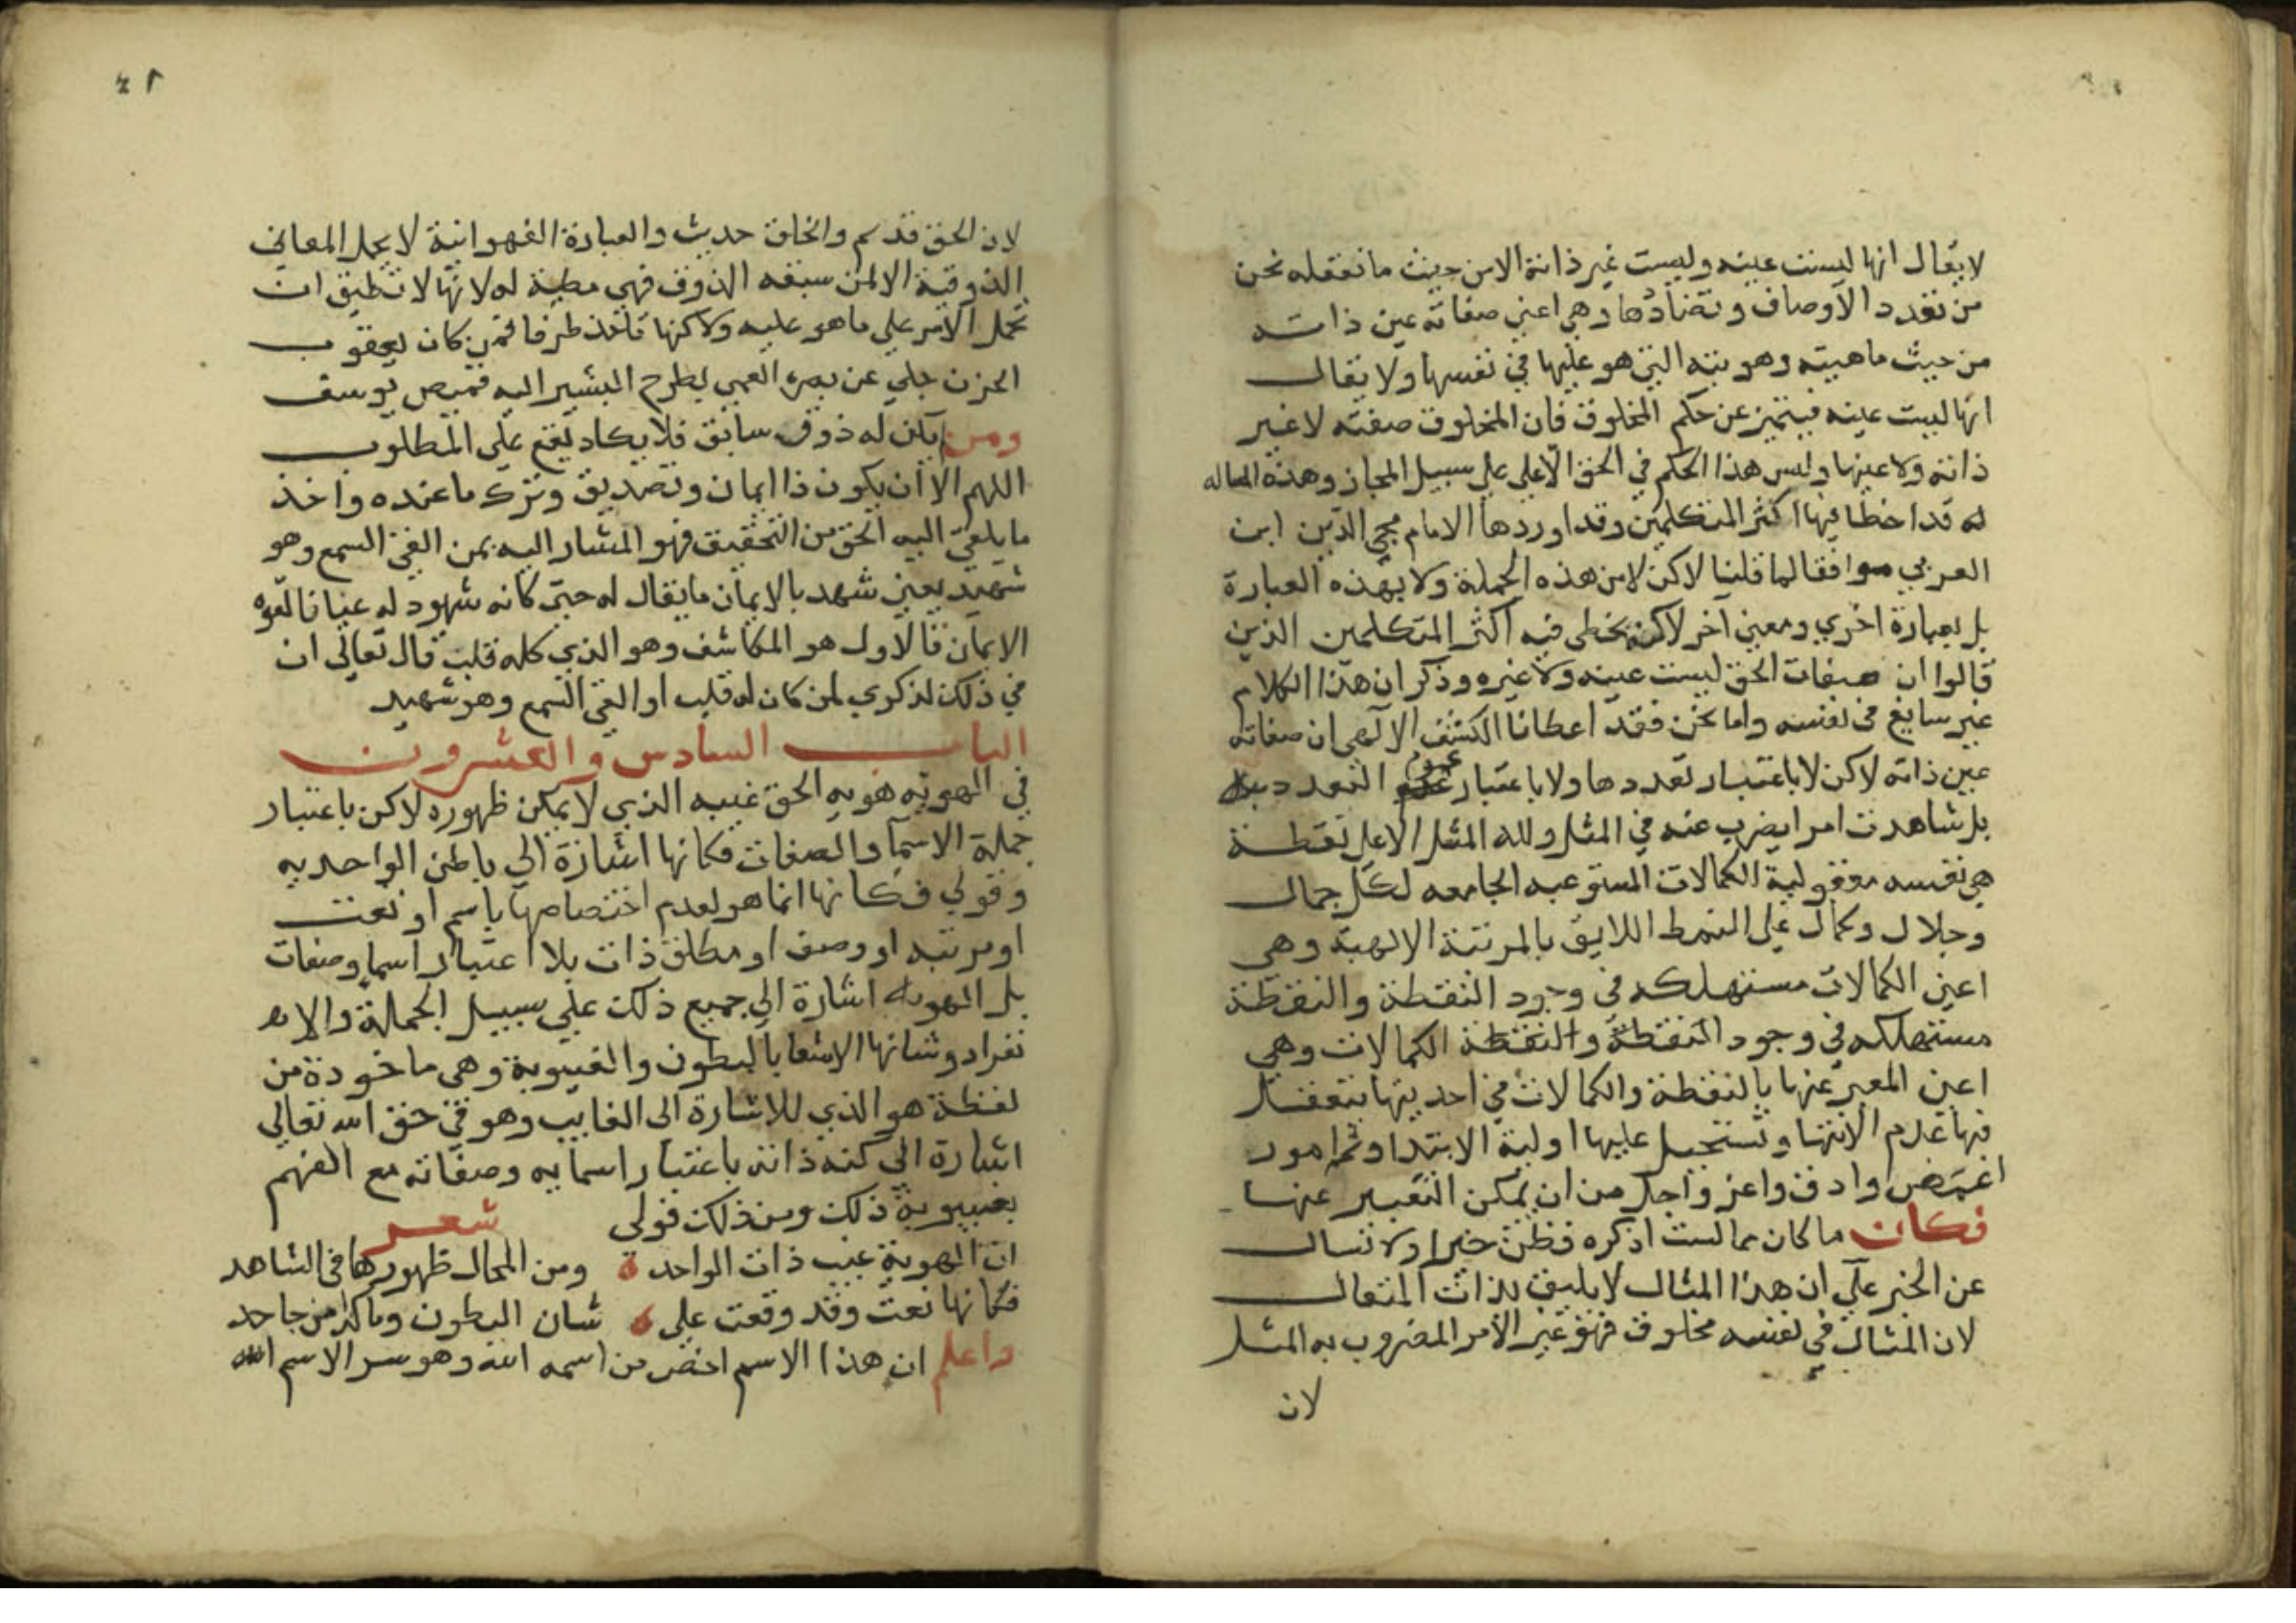 لا يقال انها ليست عينه وليست غير ذاته الا من حيث ما نعقله نحن
من تعدد الاوصاف وتضادها وهي اعني صفاته عين ذاته
من حيث ماهيته وهويته التي هو عليها في نفسها ولا يقال
انها ليست عينه فيتميز عن حكم المخلوق فان المخلوق صفته لا غير
ذاته ولا عينها وليس هذا الحكم في الحق الا علي سبيل المجاز وهذه المساله
قد اخطا فيها اكثر المتكلمين وقد اوردها الامام محي الدين ابن
العربي موافقا لما قلنا لاكن لا من هذه الجملة ولا بهذه العبارة
بل بعبارة اخري ومعني آخر لاكنه يخطي فيه اكثر المتكلمين الذين
قالوا ان صفات الحق ليست عينه ولا غيره وذكر ان هذا الكلام
غير سايغ في نفسه واما نحن فقد اعطانا الكشف الالهي ان صفاته
عين ذاته لاكن لا باعتبار تعددها ولا باعتبار عدم التعدد
بل شاهدت امرا يضرب عنه في المثل ولله المثل الاعلي نقطة
هي نفسه معقولية الكمالات المستوعبه الجامعه لكل جمال
وجلال وكمال علي النمط اللايق بالمرتبة الالهية وهي
اعني الكمالات مستهلكه في وجود النقطة والنقطة
مستهلكه في وجود النقطة والنقطة الكمالات وهي
اعني المعبر عنها بالنقطة والكمالات في احديتها يتعقل
فيها عدم الانتها وتستحيل عليها اولية الابتدا وثم امور
اغمض وادق واعز واجل من ان يمكن التعبير عنها
فكان ما كان مما لست اذكره فظن خيرا ولا تسال
عن الخبر علي ان هذا المثال لا يليق بذات المتعال
لان المثال في نفسه مخلوق فهو غير الامر المضروب به المثل
لان
٤١
لان الحق قديم والخلق حديث والعبارة الفهوانية لا تحمل المعاني
الذوقية الا لمن سبقه الذوق فهي مطية له لانها لا تطيق ان
تحمل الامر علي ما هو عليه ولاكنها تاخذ طرفا فمن كان يعقوب
الحزن جلي عن بصره العمي بطرح البشير اليه قميص يوسف
ومن لم يكن له ذوق سابق فلا يكاد يقع علي المطلوب
اللهم الا ان يكون ذا ايمان وتصديق وترك ما عنده واخذ
ما يلقي اليه الحق من التحقيق فهو المشار اليه بمن القي السمع وهو
شهيد يعني شهد بالايمان ما يقال له حتي كانه شهود له عيانا لقوة
الايمان فالاول هو المكاشف وهو الذي كله قلب قال تعالي ان
في ذلك لذكري لمن كان له قلب او القي السمع وهو شهيد
الباب السادس والعشرون
في الهويه هويه الحق غيبه الذي لا يمكن ظهوره لاكن باعتبار
جملة الاسما والصفات فكانها اشارة الي باطن الواحديه
وقولي فكانها انما هو لعدم اختصاصها باسم او نعت
او مرتبه او وصف او مطلق ذات بلا اعتبار اسما وصفات
بل الهويه اشارة الي جميع ذلك علي سبيل الجملة والا
نفراد وشانها الاشعا بالبطون والغيبوبة وهي ماخوذة من
لفظة هو الذي للاشارة الي الغايب وهو في حق الله تعالي
اشارة الي كنه ذاته باعتبار اسمايه وصفاته مع الفهم
بغيبوبة ذلك ومن ذلك قولي شعر
ان الهوية غيب ذات الواحد ومن المحال ظهورها في الشاهد
فكانها نعت وقد وقعت علي شان البطون وما لذا من جاحد
واعلم ان هذا الاسم اخص من اسمه الله وهو سر الاسم الله